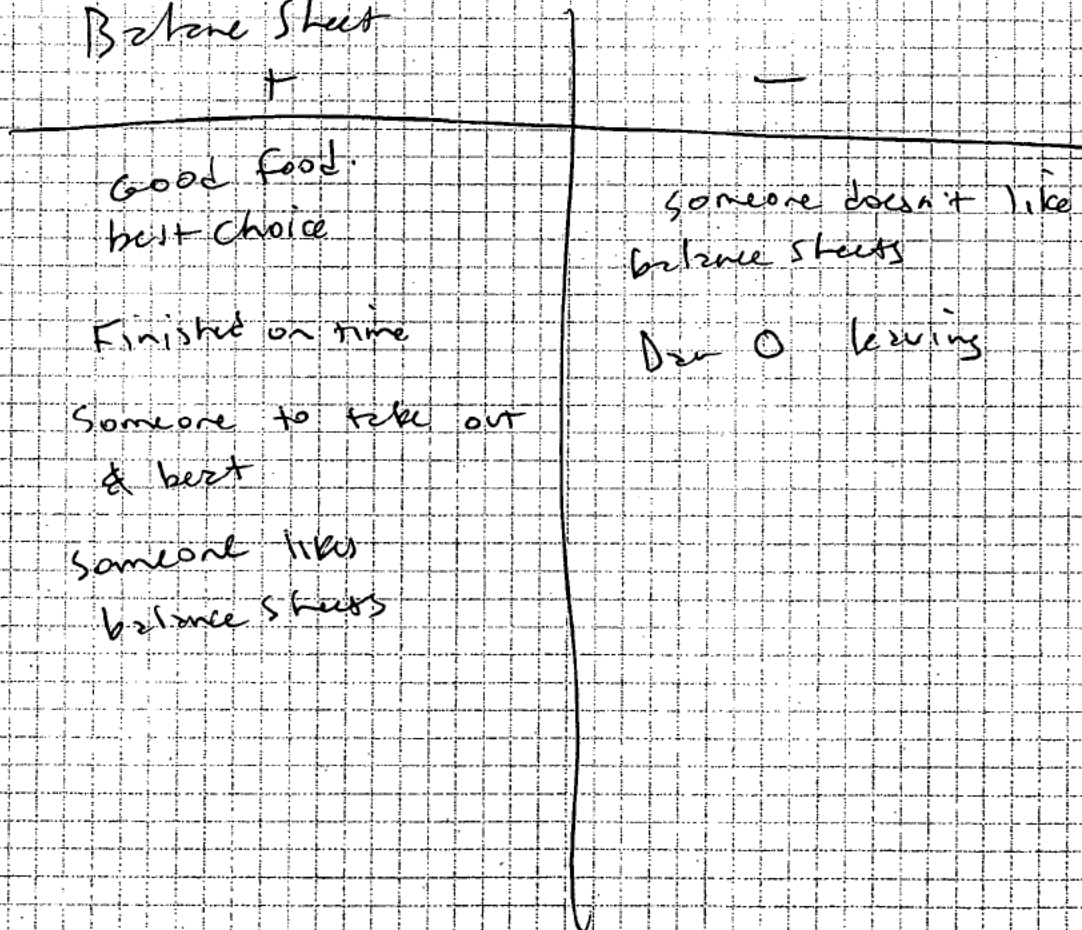 Balance Sheet
+
—
Good food.
best choice
Finished on time
Someone to take out
& beat
Someone likes
balance sheets
someone doesn't like
balance sheets
Dan O leaving